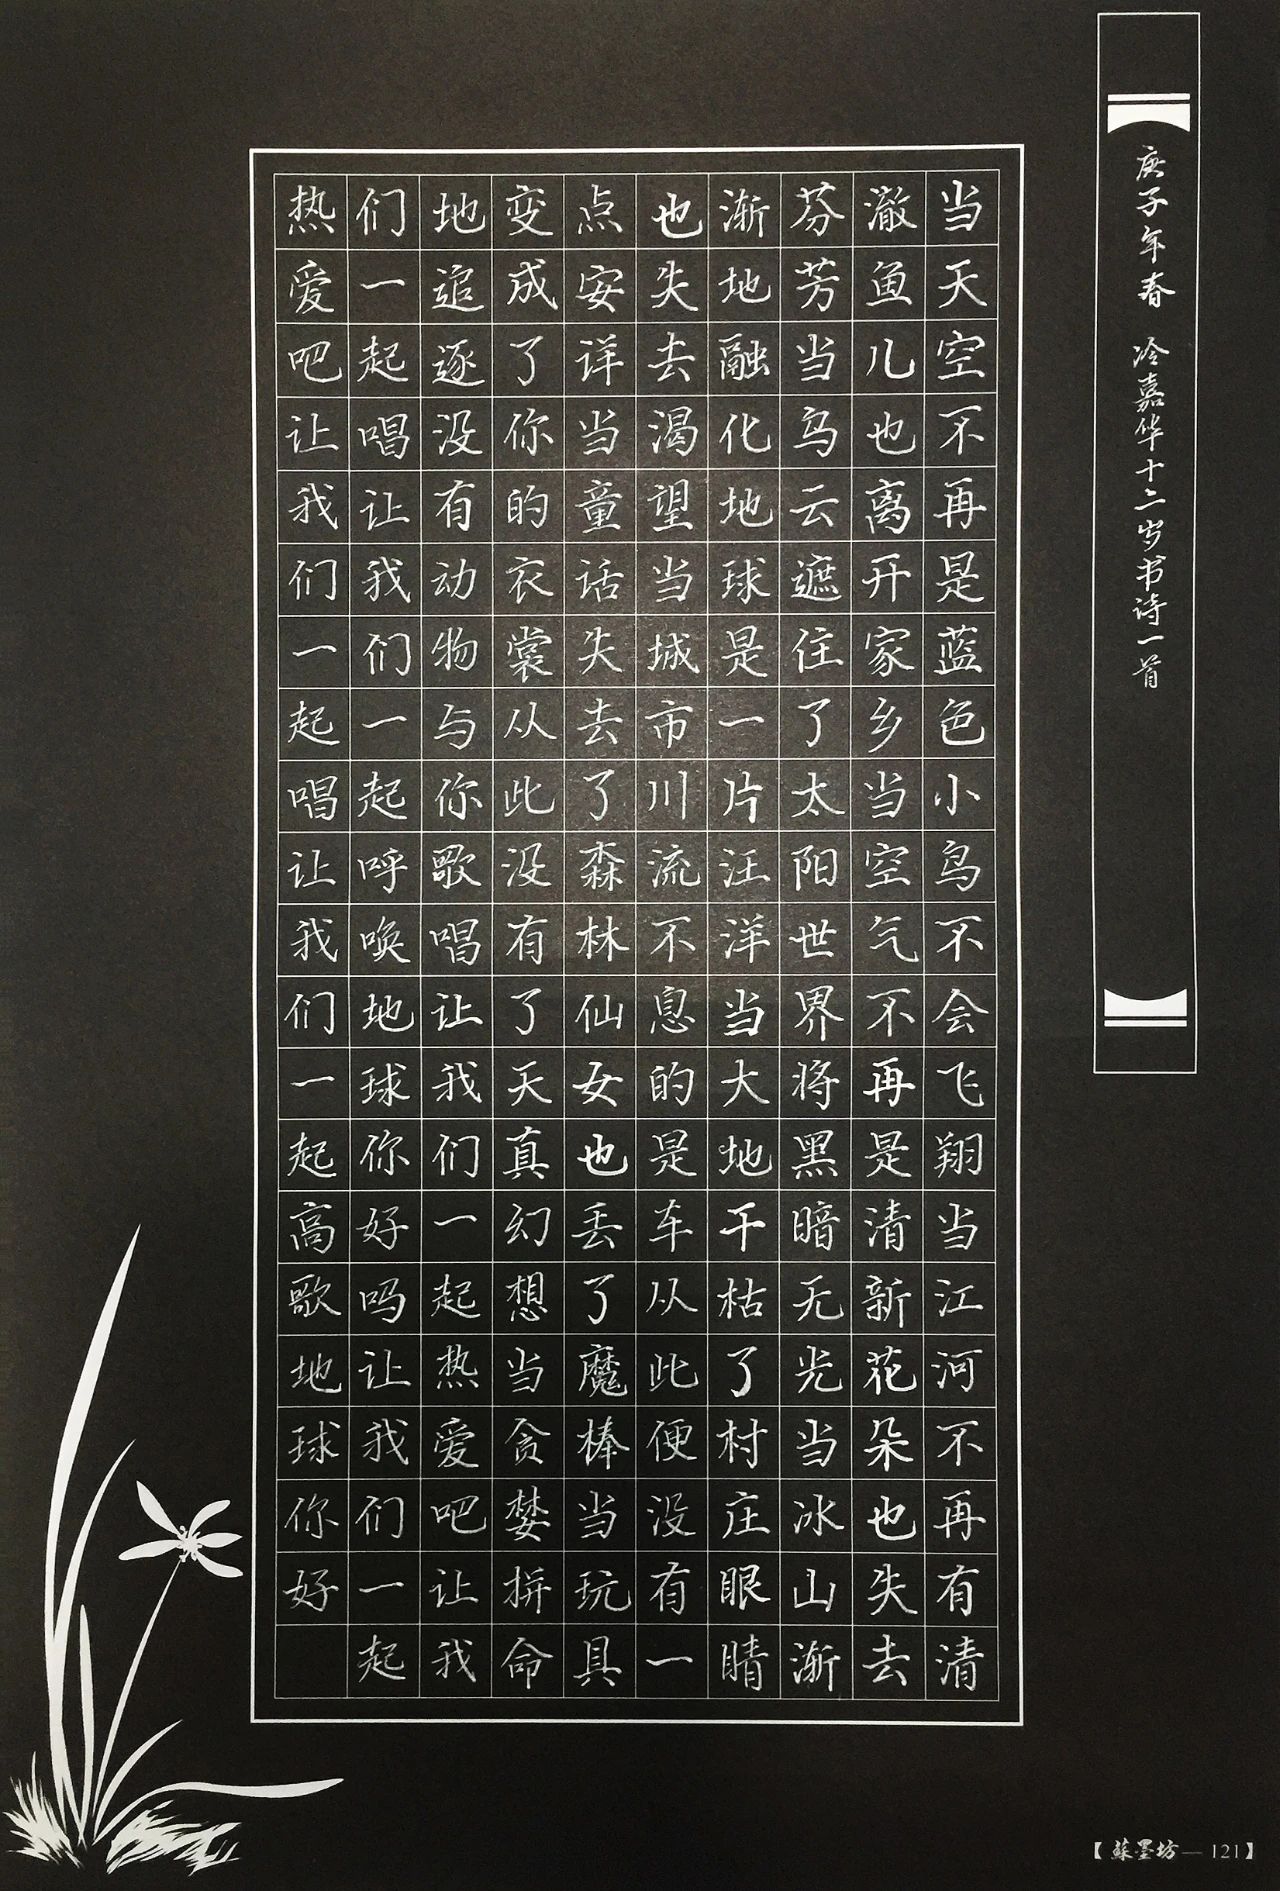 庚子年春 冷嘉华十二岁书诗一首
当天空不再是蓝色小鸟不会飞翔当江河不再有清
澈鱼儿也离开家乡当空气不再是清新花朵也失去
芬芳当乌云遮住了太阳世界将黑暗无光当冰山渐
渐地融化地球是一片汪洋当大地干枯了村庄眼睛
也失去渴望当城市川流不息的是车从此便没有一
点安详当童话失去了森林仙女也丢了魔棒当玩具
变成了你的衣裳从此没有了天真幻想当贪婪拼命
地追逐没有动物与你歌唱让我们一起热爱吧让我
们一起唱让我们一起呼唤地球你好吗让我们一起
热爱吧让我们一起唱让我们一起高歌地球你好
【蘇墨坊— 121】